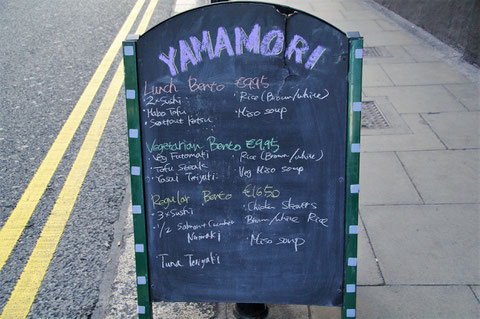 YAMAMORI
Lunch Bento €9.95
• 2 x Sushi
• Mabo Tofu
• Katsu
• Rice (Brown/white)
• Miso soup
Vegetarian Bento €9.95
• Veg Futomaki
• Tofu Steak
• Yasai Teriyaki
• Rice (Brown/white)
Veg Miso soup
Regular Bento €16.50
• 3 x Sushi
• 1/2 Salmon + Cucumber
• Chicken Skewers
Brown/white Rice
• Miso soup
Tuna Teriyaki